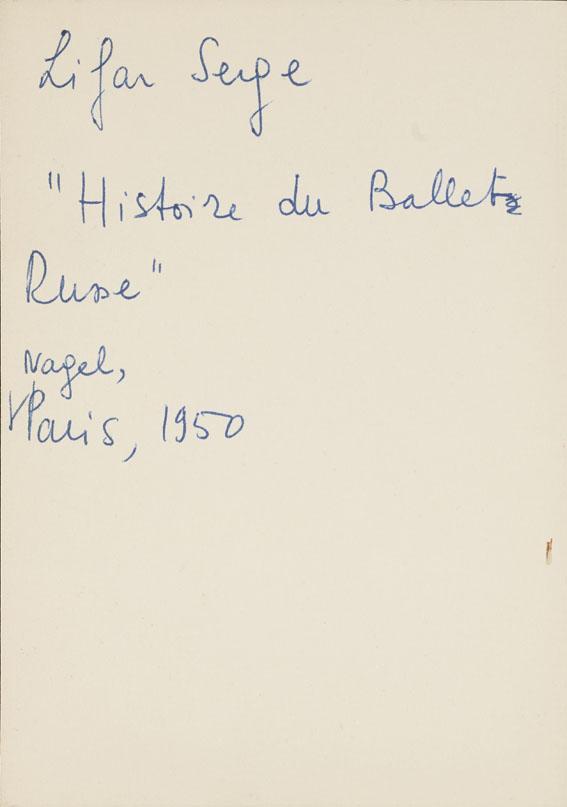 Lifar Serge
"Histoire du Ballet
Russe"
Nagel,
Paris, 1950